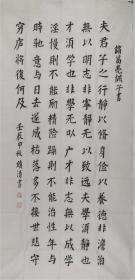 諸葛亮誡子書
夫君子之行靜以修身儉以養德非澹泊
無以明志非寧靜無以致遠夫學須靜也
才須學也非學無以廣才非志無以成學
淫慢則不能勵精險躁則不能治性年與
時馳意與日去遂成枯落多不接世悲守
窮廬將復何及 壬辰中秋 清書